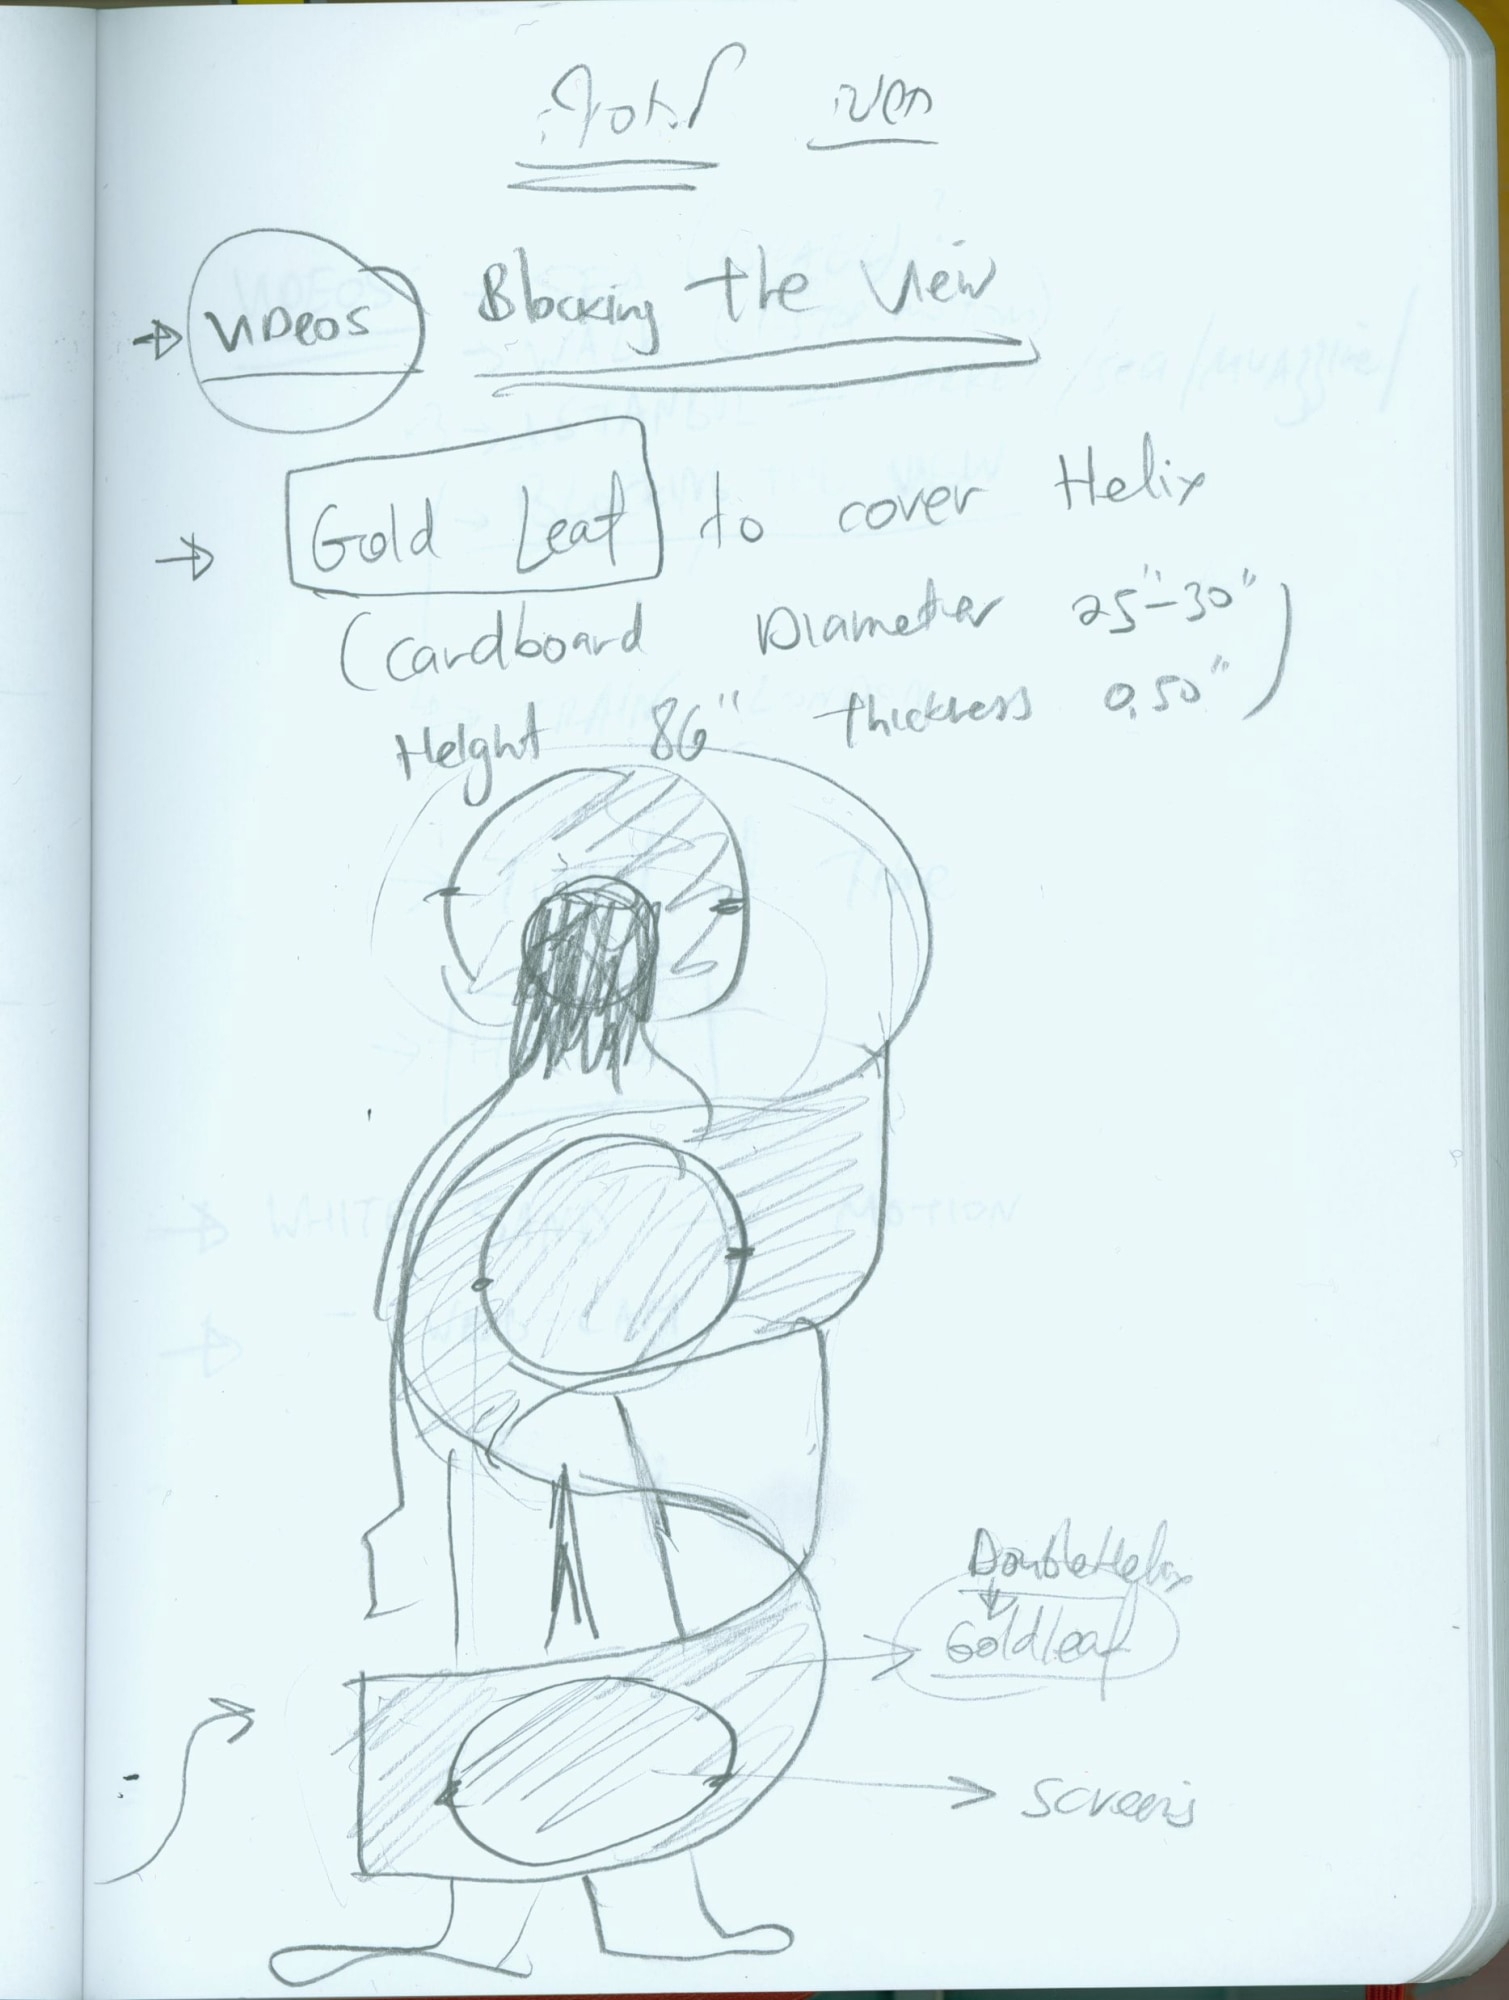 VIDEOS Blocking the View
Gold Leaf to cover Helix
(cardboard Diameter 25"-30"
Height 86" thickness 0.50")
Double Helix
Goldleaf
screens